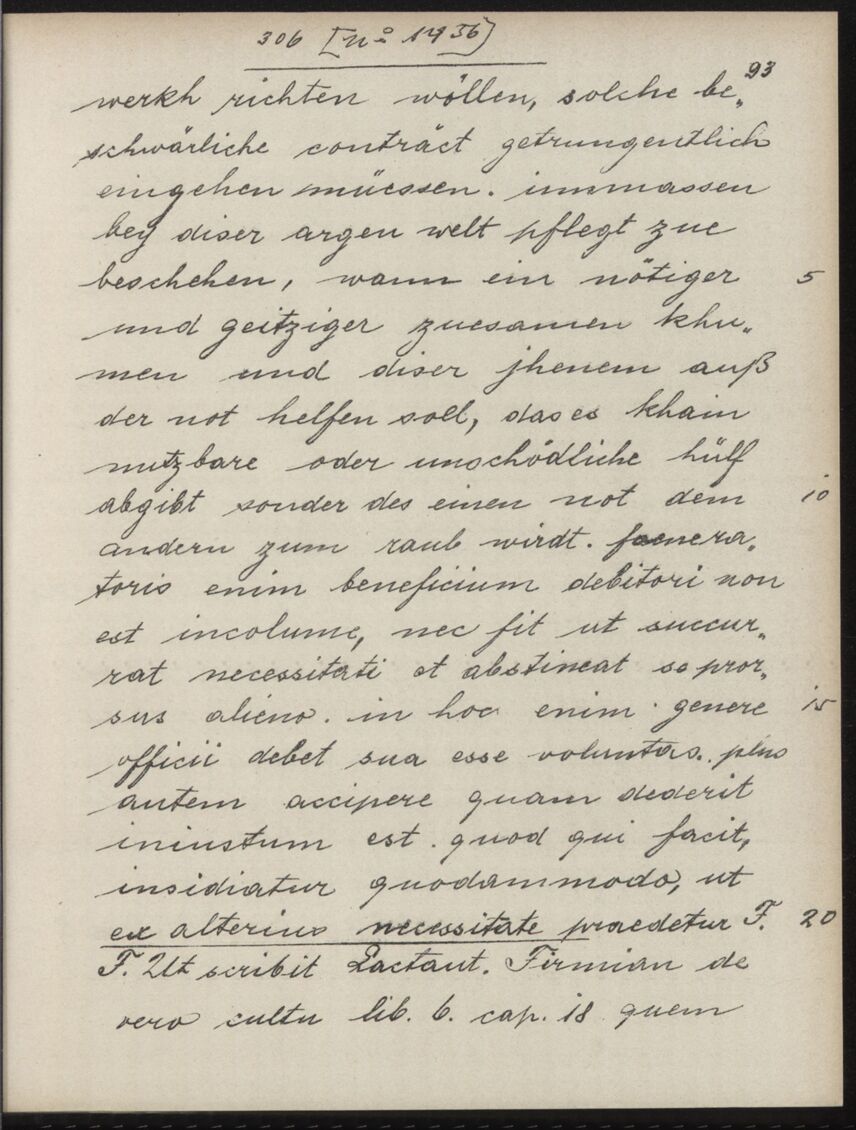 306 [nº 1456]
93
werkh richten wöllen, solche be„
schwärliche conträct getrungentlich
eingehen müessen. immassen
bey diser argen welt pflegt zue
beschehen, wann ein nötiger 5
und geitziger zuesamen khu„
men und diser jhenem auß
der not helfen soll, das es khain
nutzbare oder unschödliche hülf
abgibt sonder des einen not dem 10
andern zum raub wirdt. foenera„
toris enim beneficium debitori non
est incolume, nec fit ut succur„
rat necessitati et abstineat se pror„
sus alieno. in hoc enim genere 15
officii debet sua esse voluntas. plus
autem accipere quam dederit
iniustum est. quod qui facit,
insidiatur quodammodo, ut
ex alterius necessitate praedetur F. 20
F. Ut scribit Lactant. Firmian de
vero cultu lib. 6. cap. 18 quem